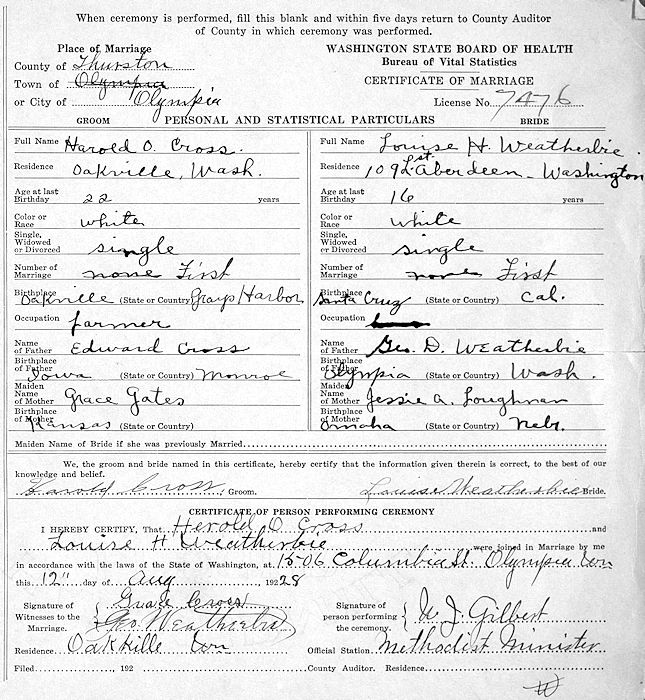 When ceremony is performed, fill this blank and within five days return to County Auditor
of County in which ceremony was performed.
Place of Marriage
County of Thurston
Town of Olympia
or City of Olympia
WASHINGTON STATE BOARD OF HEALTH
Bureau of Vital Statistics
CERTIFICATE OF MARRIAGE
License No. 7476
GROOM PERSONAL AND STATISTICAL PARTICULARS BRIDE
Full Name Harold O. Cross.
Residence Oakville, Wash.
Age at last
Birthday 22 years
Color or
Race white
Single,
Widowed
or Divorced single
Number of
Marriage none First
Birthplace
Oakville (State or Country) Grays Harbor
Occupation farmer
Name
of Father Edward Cross
Birthplace
of Father
Iowa (State or Country) Monroe
Maiden
Name
of Mother Grace Gates
Birthplace
of Mother
Kansas (State or Country)
Full Name Louise H. Weatherbie.
Residence 109 1st. Aberdeen - Washington
Age at last
Birthday 16 years
Color or
Race white
Single,
Widowed
or Divorced single
Number of
Marriage none First
Birthplace
Santa Cruz (State or Country) Cal.
Occupation
Name
of Father Geo. D. Weatherbie
Birthplace
of Father
Olympia (State or Country) Wash.
Maiden
Name
of Mother Jessie A. Loughnan
Birthplace
of Mother
Omaha (State or Country) Nebr.
Maiden Name of Bride if she was previously Married
We, the groom and bride named in this certificate, hereby certify that the information given therein is correct, to the best of our
knowledge and belief.
Harold Cross, Groom. Louise Weatherbie Bride.
CERTIFICATE OF PERSON PERFORMING CEREMONY
I HEREBY CERTIFY, That Herold O Cross and
Louise H Weatherbie were joined in Marriage by me
in accordance with the laws of the State of Washington, at 1506 Columbia St. Olympia
this 12" day of Aug 1928
Signature of
Witnesses to the
Marriage.
Grace Cross
Geo. Weatherbie
Residence Oakville
Signature of
person performing
the ceremony.
J Gilbert
Official Station Methodist Minister
Filed, 192 County Auditor. Residence